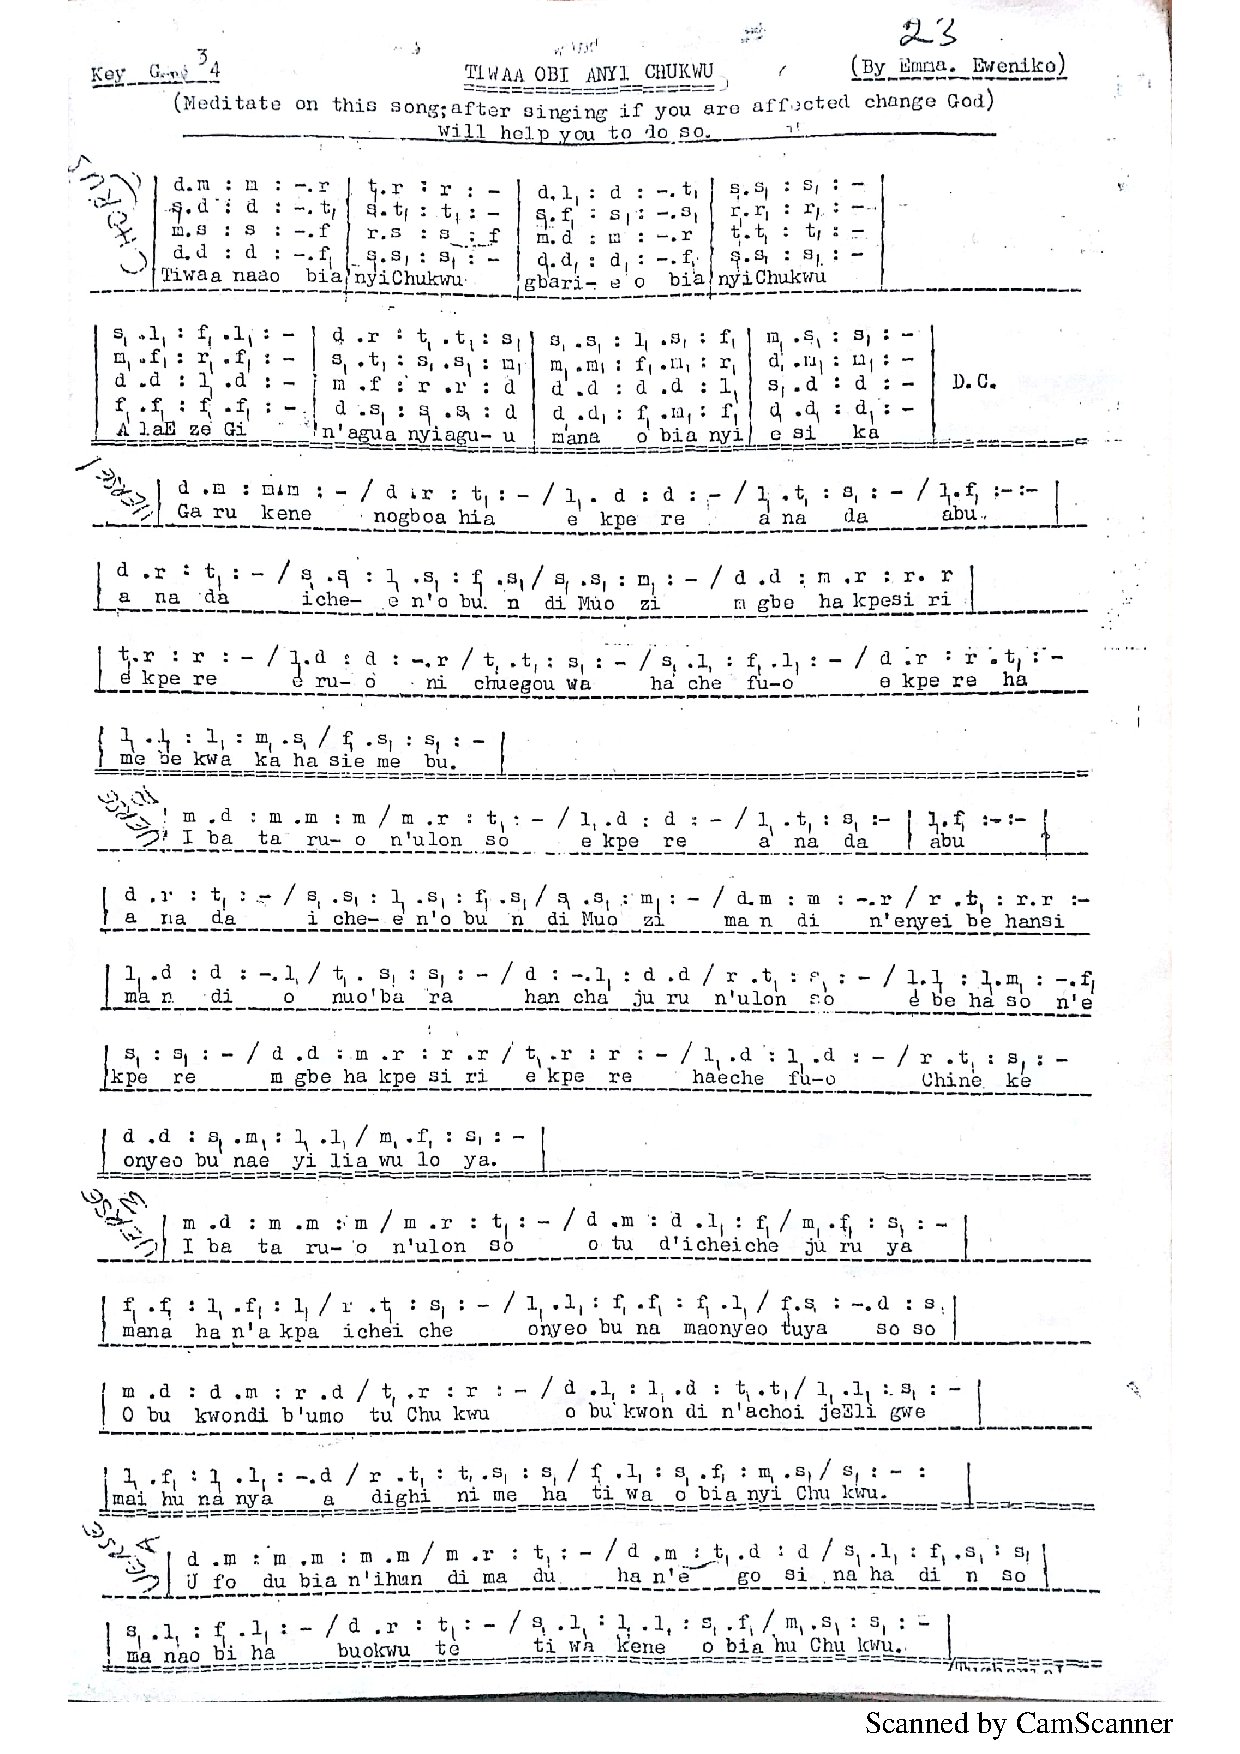 23
Key G 3/4 TIWAA OBI ANYI CHUKWU (By Emma. Eweniko)
(Meditate on this song;after singing if you are affected change God)
Will help you to do so.
CHORUS
d.m : m : -.r | t.r : r : - | d.l₁ : d : -.t₁ | s.s₁ : s₁ : -
s.d : d : -.t₁ | s.t₁ : t₁ : - | s.f₁ : s₁ : -.s₁ | r.r₁ : r₁ : -
m.s : s : -.f | r.s : s : f | m.d : m : -.r | t.t₁ : t₁ : -
d.d : d : -.f₁ | s.s₁ : s₁ : - | d.d₁ : d₁ : -.f₁ | s.s₁ : s₁ : -
Tiwaa naao bia nyiChukwu gbari- e o bia nyiChukwu
s₁ .l₁ : f₁ .l₁ : - | d .r : t₁ .t₁ : s₁ | s₁ .s₁ : l₁ .s₁ : f₁ | m₁ .s₁ : s₁ : -
m₁ .f₁ : r₁ .f₁ : - | s₁ .t₁ : s₁ .s₁ : m₁ | m₁ .m₁ : f₁ .m₁ : r₁ | d₁ .m₁ : m₁ : -
d .d : l₁ .d : - | m .f : r .r : d | d .d : d .d : l₁ | s₁ .d : d : - | D.C.
f₁ .f₁ : f₁ .f₁ : - | d .s₁ : s₁ .s₁ : d | d .d₁ : f₁ .m₁ : f₁ | d₁ .d₁ : d₁ : -
A laE ze Gi n'agua nyiagu- u mana o bia nyi e si ka
VERSE 1
d .m : m.m : - / d .r : t₁ : - / l₁ . d : d : - / l₁ .t₁ : s₁ : - / l₁.f₁ :-:-
Ga ru kene nogboa hia e kpe re a na da abu.
d .r : t₁ : - / s₁ .s₁ : l₁ .s₁ : f₁ .s₁ / s₁ .s₁ : m₁ : - / d .d : m .r : r. r
a na da iche- e n'o bu n di Muo zi m gbe ha kpesi ri
t₁.r : r : - / l₁.d : d : -.r / t₁ .t₁ : s₁ : - / s₁ .l₁ : f₁.l₁ : - / d .r : r .t₁ : -
e kpe re e ru- o ni chuegou wa ha che fu-o e kpe re ha
l₁ .l₁ : l₁ : m₁ .s₁ / f₁ .s₁ : s₁ : -
me be kwa ka ha sie me bu.
VERSE 2
m .d : m .m : m / m .r : t₁ : - / l₁ .d : d : - / l₁ .t₁ : s₁ :- | l₁.f₁ :-:-
I ba ta ru- o n'ulon so e kpe re a na da abu
d .r : t₁ : - / s₁ .s₁ : l₁ .s₁ : f₁ .s₁ / s₁ .s₁ : m₁ : - / d.m : m : -.r / r .t₁ : r.r :-
a na da i che- e n'o bu n di Muo zi ma n di n'enyei be hansi
l₁ .d : d : -.l₁ / t₁ . s₁ : s₁ : - / d : -.l₁ : d .d / r .t₁ : s₁ : - / l₁.l₁ : l₁.m₁ : -.f₁
ma n di o nuo'ba ra han cha ju ru n'ulon so e be ha so n'e
s₁ : s₁ : - / d .d : m .r : r .r / t₁ .r : r : - / l₁ .d : l₁ .d : - / r .t₁ : s₁ : -
kpe re m gbe ha kpe si ri e kpe re haeche fu-o Chine ke
d .d : s₁ .m₁ : l₁ .l₁ / m₁ .f₁ : s₁ : -
onyeo bu nae yi lia wu lo ya.
VERSE 3
m .d : m .m : m / m .r : t₁ : - / d .m : d .l₁ : f₁ / m₁ .f₁ : s₁ : -
I ba ta ru- o n'ulon so o tu d'icheiche ju ru ya
f₁ .f₁ : l₁ .f₁ : l₁ / r .t₁ : s₁ : - / l₁ .l₁ : f₁ .f₁ : f₁ .l₁ / f.s₁ : -.d : s₁
mana ha n'a kpa ichei che onyeo bu na maonyeo tuya so so
m .d : d .m : r .d / t₁ .r : r : - / d .l₁ : l₁ .d : t₁ .t₁ / l₁ .l₁ : s₁ : -
O bu kwondi b'umo tu Chu kwu o bu kwon di n'achoi jeEli gwe
l₁ .f₁ : l₁ .l₁ : -.d / r .t₁ : t₁ .s₁ : s₁ / f₁ .l₁ : s₁ .f₁ : m₁ .s₁ / s₁ : - :
mai hu na nya a dighi ni me ha ti wa o bia nyi Chu kwu.
VERSE 4
d .m : m .m : m .m / m .r : t₁ : - / d .m : t₁ .d : d / s₁ .l₁ : f₁ .s₁ : s₁
U fo du bia n'ihun di ma du ha n'e go si na ha di n so
s₁ .l₁ : f₁ .l₁ : - / d .r : t₁ : - / s₁ .l₁ : l₁ .l₁ : s₁ .f₁ / m₁ .s₁ : s₁ : -
ma nao bi ha buokwu te ti wa kene o bia hu Chu kwu.
Scanned by CamScanner